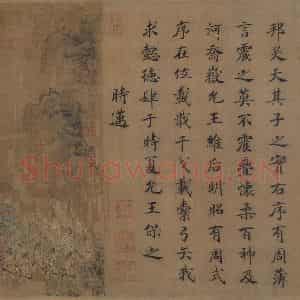 邦昊天其子之實右序有周薄
言震之莫不震疊懷柔百神及
河喬嶽允王維后明昭有周式
序在位載戢干戈載櫜弓矢我
求懿德肆于時夏允王保之
時邁
Shufawang.CN